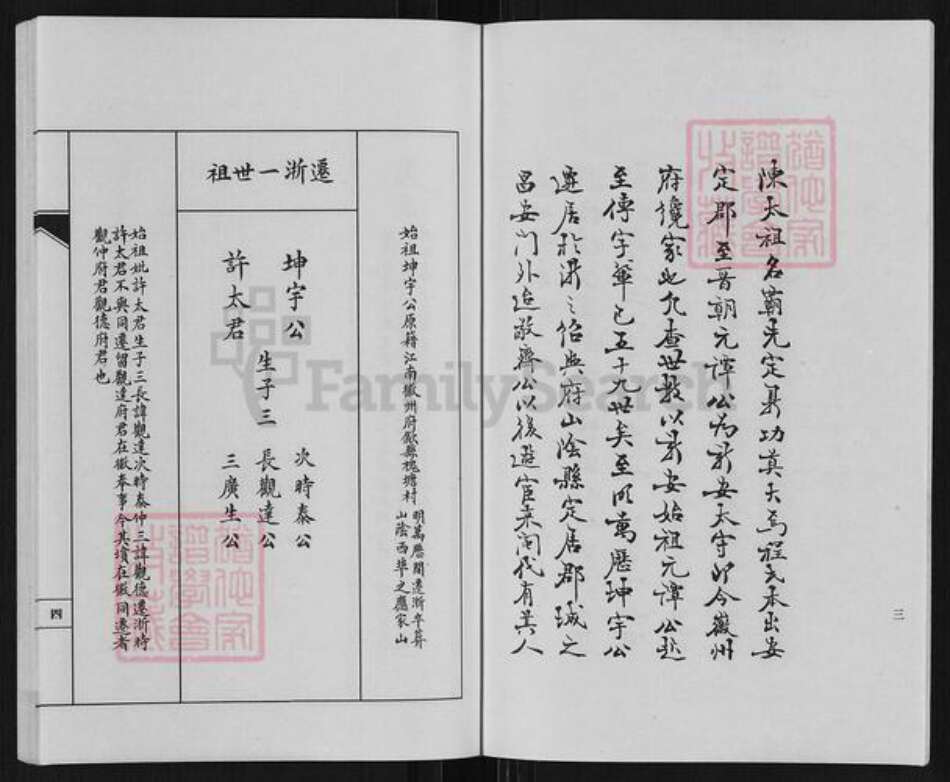 陳太祖名霸先定鼎功莫大焉程氏本出安
定郡至晉朝元譚公為新安太守即今徽州
府後家也凡查世數以新安始祖元譚公起
至傳字輩已五十九世矣至明萬歷坤宇公
遷居於浙之紹興府山陰縣定居郡城之
昌安門外迨敬齊公以後遊宦未聞代有其人
三
始祖坤宇公原籍江南徽州府歙縣槐塘村
明萬歷間遷浙卒葬
山陰西華之應家山
遷浙一世祖
坤宇公
許太君
生子三
次時泰公
長觀達公
三廣生公
始祖妣許太君生子三長諱觀達次時泰仲三諱觀德遷浙時
許太君不與同遷留觀達府君在徽奉事今其墳在徽同遷者
觀仲府君觀德府君也
四
FamilySearch